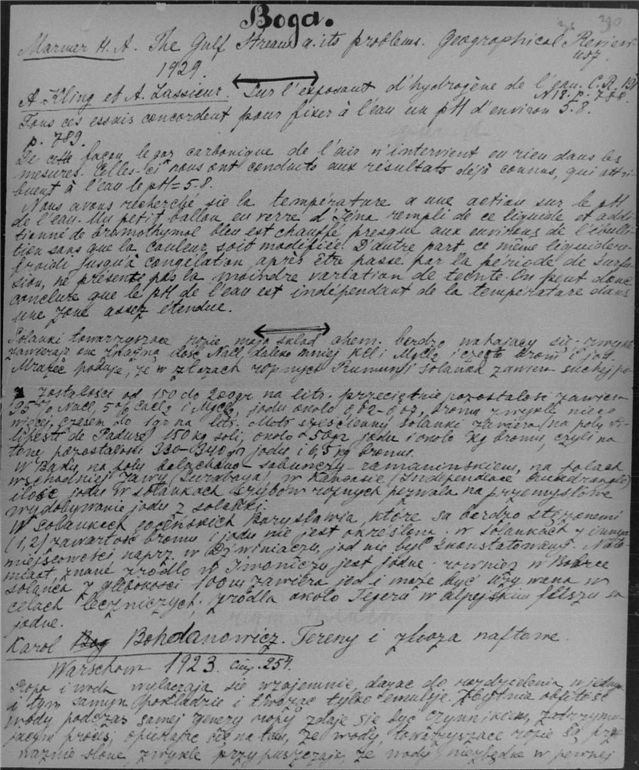 Вода.
390
Marmer H. A. The Gulf Stream a. its problems. Geographical Review
1929.
A. Kling et A. Lassieur. Sur l'exposant d'hydrogène de l'eau. C. R.
Tous ces essais concordent pour fixer à l'eau un pH d'environ 5.8.
p. 789.
De cette façon, le gaz carbonique de l'air n'intervient en rien dans les
mesures. Celles-ci nous ont conduits aux résultats déjà connus, qui attri-
buent à l'eau le pH = 5.8.
Nous avons recherché si la température a une action sur le pH
de l'eau. Un petit ballon en verre d'Iena rempli de ce liquide et addi-
tionné de brômothymol bleu est chauffé presque aux environs de l'ébulli-
tion sans que la couleur soit modifiée. D'autre part ce même liquide re-
froidi jusqu'à congélation après être passé par la période de surfu-
sion, ne présente pas la moindre variation de teinte. On peut donc
conclure que le pH de l'eau est indépendant de la température dans
une zone assez étendue.
Solanki towarzyszące ropie mają skład chem. bardzo wahający się
zawierają one znaczną ilość NaCl, daleko mniej i często brom i jod.
Mrazec podaje, że w złożach ropnych Rumunji solanka zawiera suchej po-
zostałości od 150 do 200 gr na litr. przeciętnie pozostałość zawiera
95% NaCl, 5% CaCl2 i MgCl2, jodu około 0,02-0,07, bromu zwykle nieco
więcej, czasem do 1 gr na litr. Metr sześcienny solanki zawiera (na polu
de Padure) 150 kg soli, około 50 gr jodu i około kg bromu, czyli na
tonę pozostałości 330-340 gr jodu i 6,5 kg bromu.
na polach
wschodniej Jawy (Surabaya), w Kansasie (Independence Quadrangle)
ilość jodu w solankach szybów ropnych pozwala na przemysłowe
wydobywanie jodu z solanki.
W solankach eoceńskich Borysławia które są bardzo stężonemi
(1,2) zawartość bromu i jodu nie jest określona; w solankach z innych
miejscowości naprz. w Dźwiniaczu, jod nie był skonstatowany. Nato-
miast, znane źródło w Iwoniczu jest jodne; również w
solanka z głębokości 100 m zawiera jod i może być używana w
celach leczniczych. Źródła około Tegern w alpejskim fliszu są
jodne.
Karol Bohdanowicz. Tereny i złoża naftowe.
Warschow 1923. 254.
Ropa i woda wyłączają się wzajemnie, dążąc do rozdzielenia w jednym
i tym samym pokładzie i tworząc tylko emulsje. obfitość
wody podczas samej genezy ropy zdaje się być czynnikiem,
proces; opierając się na tem, że wody towarzyszące ropie są prze-
ważnie słone zwykle przypuszczają, że wody niezbędne w pewnej